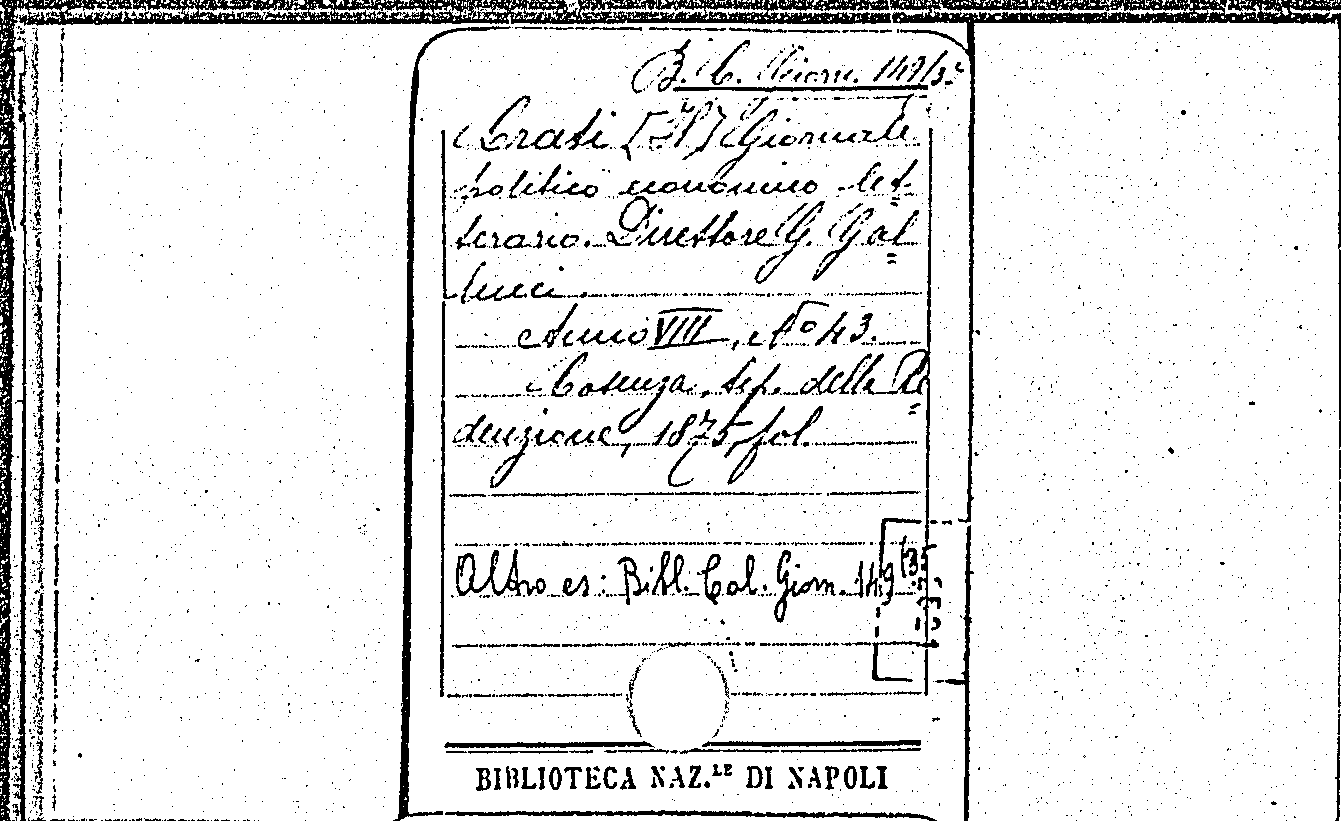 B. C. Giorn. 149/35
Crati [Il] Giornale
politico economico let=
terario. Direttore G. Gal=
lucci.
Anno VIIII, No 43.
Cosenza, tip. della Re=
denzione, 1875, fol.
Altro es: Bibl. Col. Giorn. 149 (35
BIBLIOTECA NAZ.LE DI NAPOLI